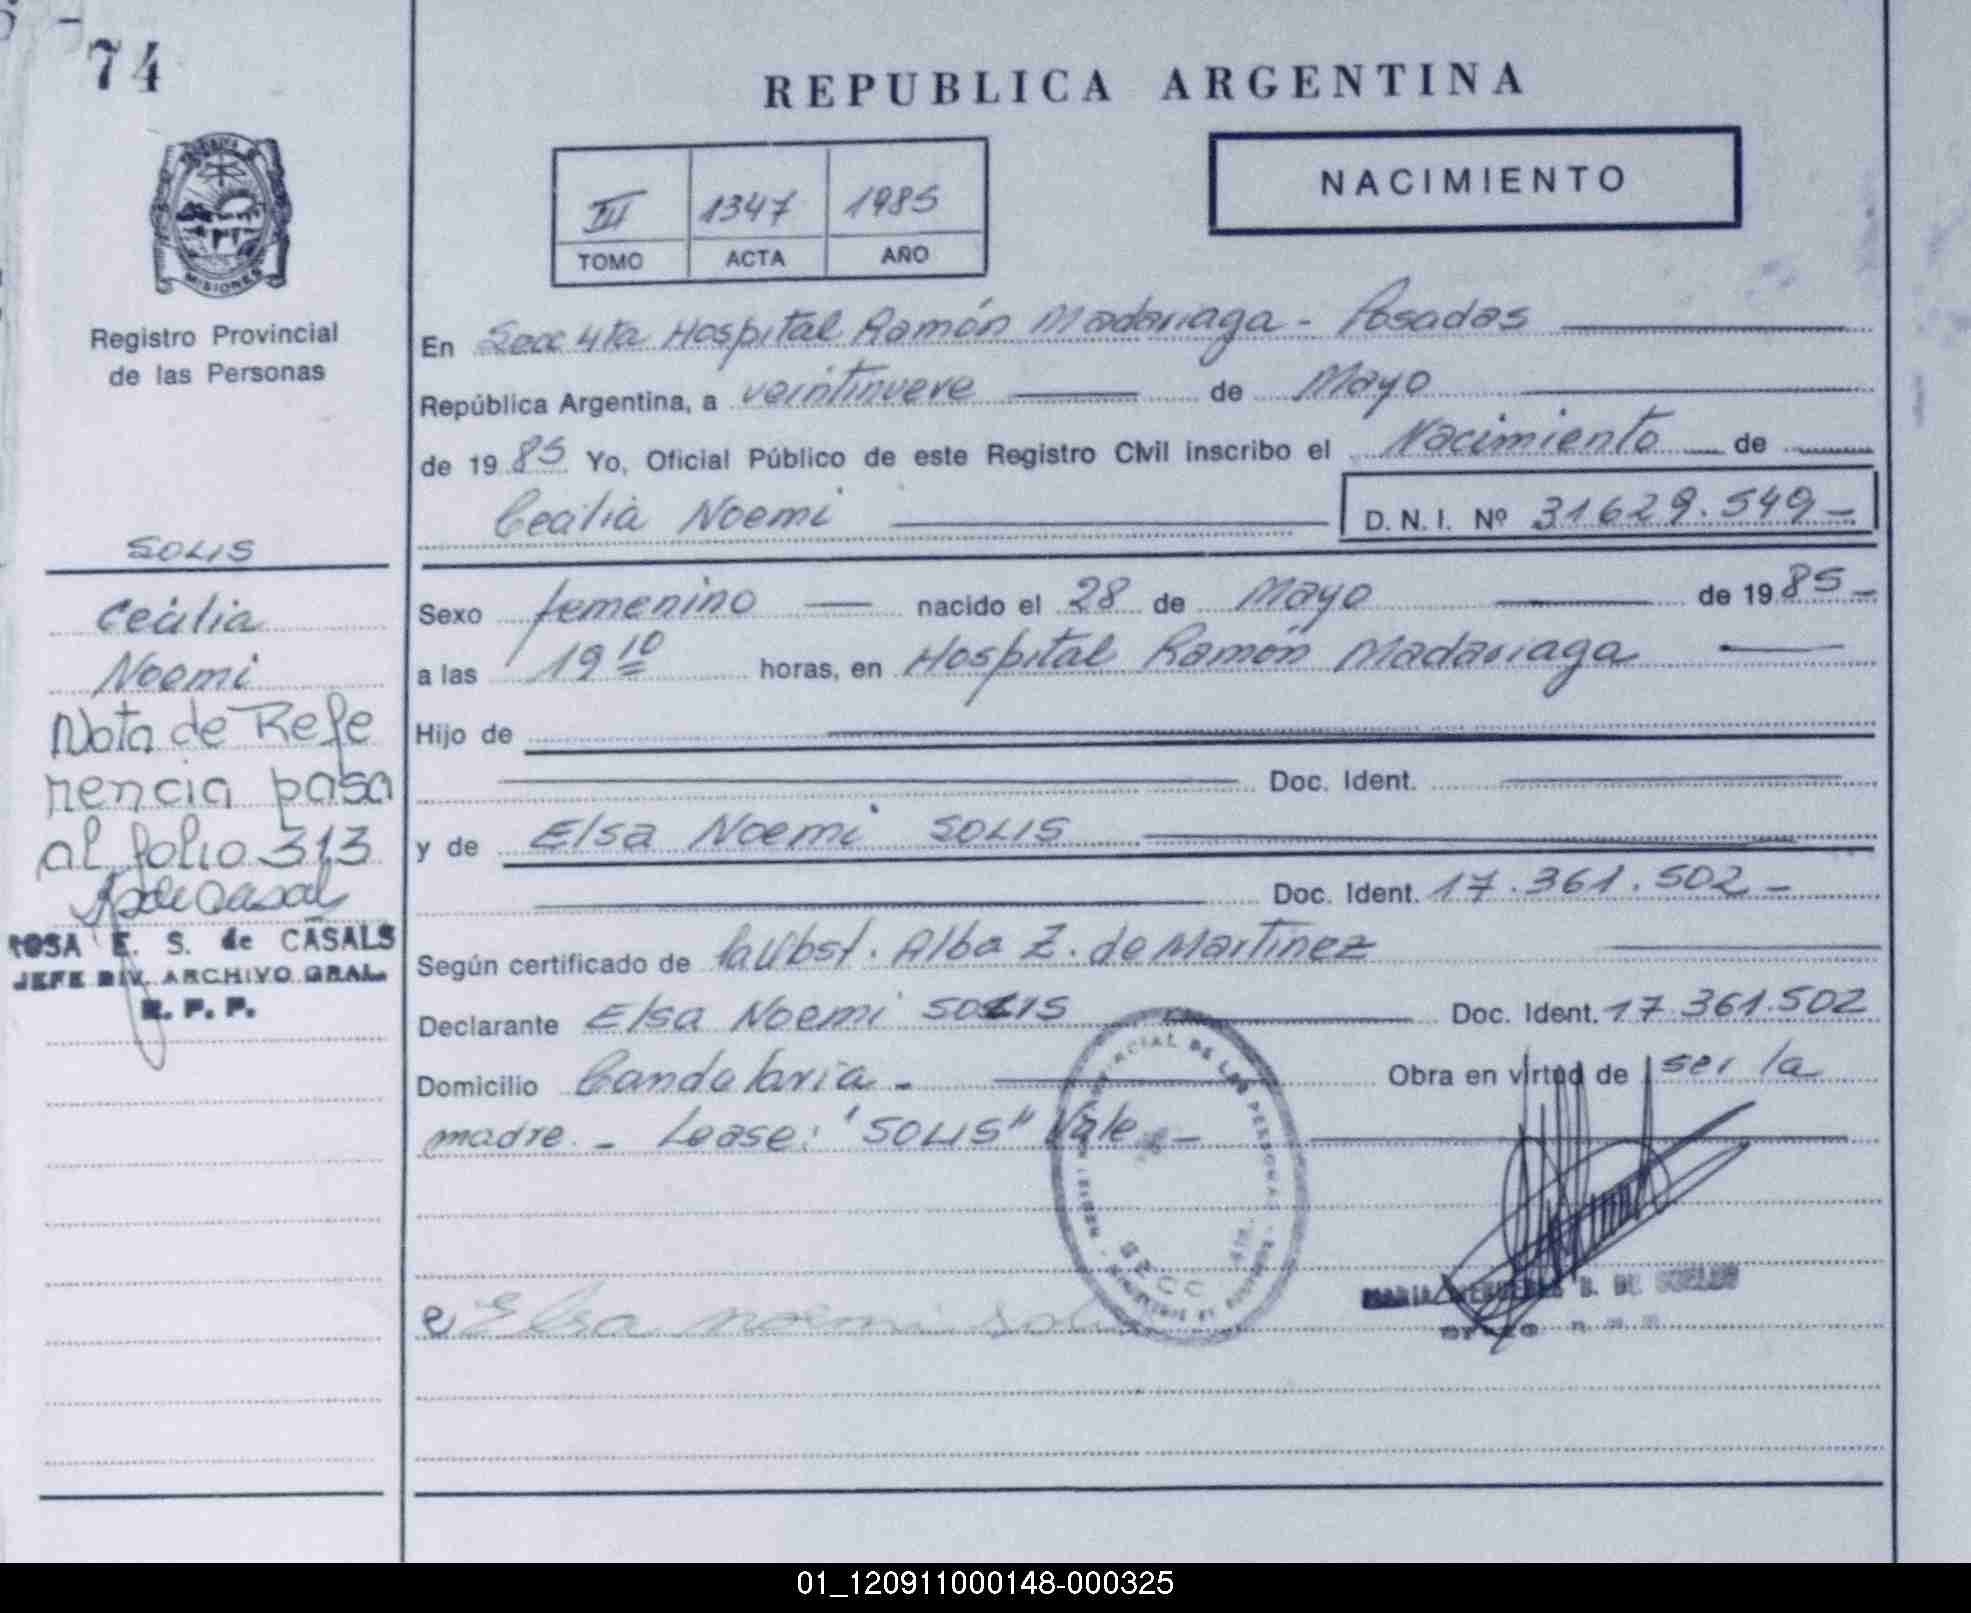 74
REPUBLICA ARGENTINA
III 1347 1985
TOMO ACTA AÑO
NACIMIENTO
MISIONES
Registro Provincial
de las Personas
SOLIS
Cecilia
Noemi
Nota de Refe
rencia pasa
al folio 313
ROSA E. S. de CASALS
JEFE DIV. ARCHIVO GRAL.
R. P. P.
En Secc 4ta Hospital Ramón Madariaga - Posadas
República Argentina, a veintinueve de Mayo
de 1985 Yo, Oficial Público de este Registro Civil inscribo el Nacimiento de
Cecilia Noemi D. N. I. Nº 31629.549-
Sexo femenino nacido el 28 de Mayo de 1985-
a las 19 10 horas, en Hospital Ramón Madariaga
Hijo de
Doc. Ident.
y de Elsa Noemi SOLIS
Doc. Ident. 17.361.502-
Según certificado de la Obst. Alba Z. de Martinez
Declarante Elsa Noemi SOLIS Doc. Ident. 17.361.502
Domicilio Candelaria - Obra en virtud de ser la
madre. - Lease: "SOLIS" Vale -
Elsa noemi sol
01_120911000148-000325